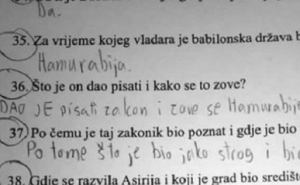 Da.
35. Za vrijeme kojeg vladara je babilonska država b
Hamurabija.
36. Što je on dao pisati i kako se to zove?
DAO JE pisati zakon i zove se Hamurabije
37. Po čemu je taj zakonik bio poznat i gdje je bio
Po tome što je bio jako strog i bio
38. Gdje se razvila Asirija i koji je grad bio središt